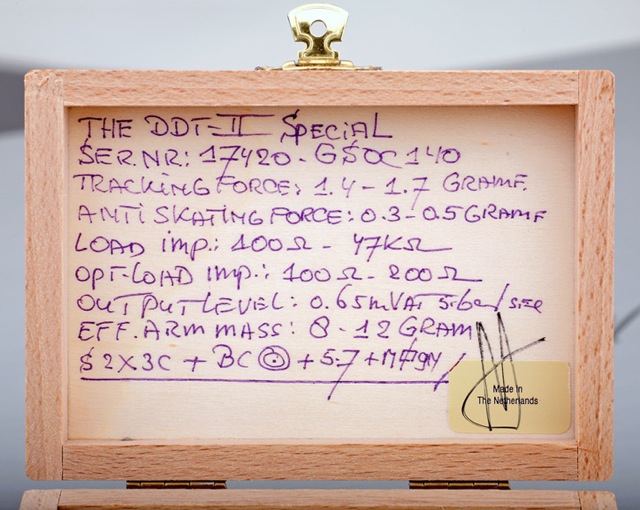 THE DDT-II SPECIAL
SER.NR: 17420-GSOC140
TRACKING FORCE: 1.4-1.7 GRAMF.
ANTI SKATING FORCE: 0.3-0.5 GRAMF
LOAD imp.: 100Ω - 47KΩ
OPT-LOAD imp.: 100Ω - 200Ω
OUTPUT LEVEL: 0.65mV AT
EFF. ARM MASS: 8-12 GRAM
$ 2X3C + BC + 5.7 +
Made in
The Netherlands